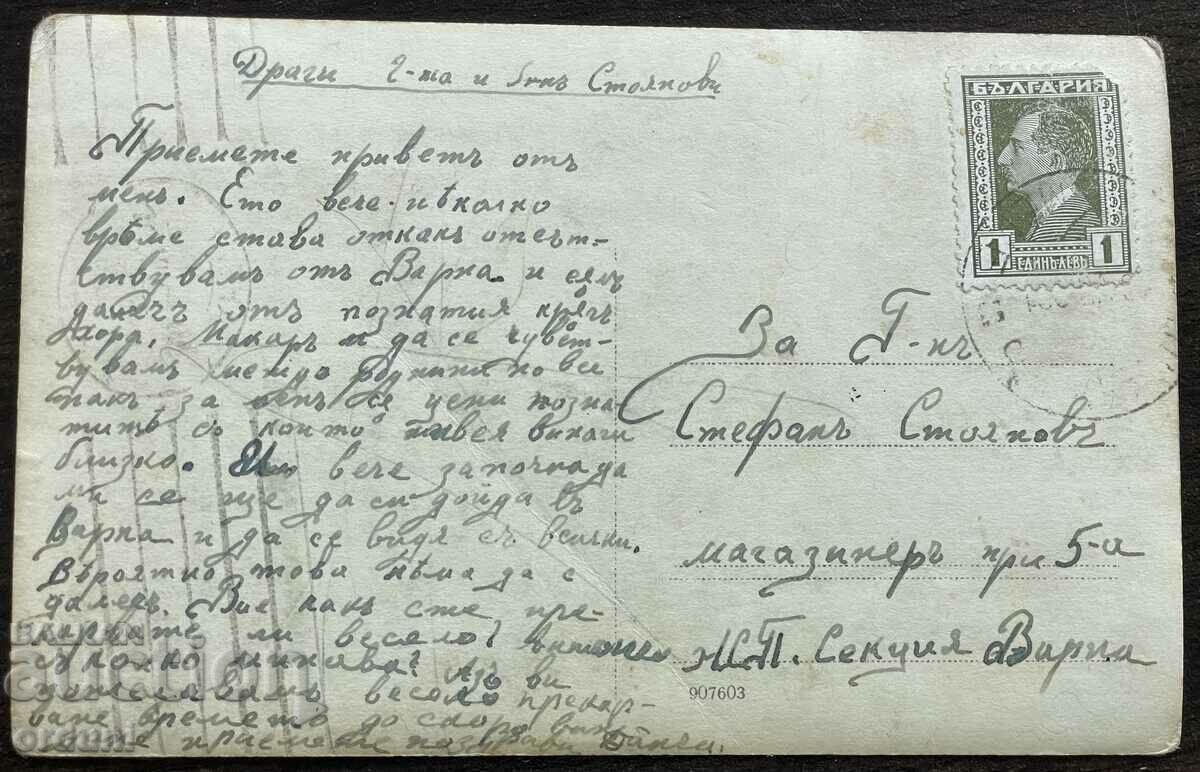 Драги г-жа и г-нъ Стоянови
Приемете приветъ отъ
менъ. Ето вече нѣколко
врѣме става откакъ отсът-
ствувамъ отъ Варна и съмъ
далечъ отъ познатия крѫгъ
хора. Макаръ и да се чувст-
вувамъ между роднини но все
пакъ за менъ се цени позна-
титѣ съ които живея винаги
близко. вече започна да
ми се ще да си дойда въ
Варна и да се видя съ всички.
Вѣроятно това нѣма да е
далечъ. Вие какъ сте, пре-
карвате ли весело,
съ колко минава? Азъ ви
пожелавамъ весело прекар-
ване времето до скоро виж-
приемете поздрави
БЪЛГАРИЯ
1 ЕДИНЪ ЛЕВЪ 1
За Г-нъ
Стефанъ Стояновъ
магазинеръ при 5-а
Ж.П. Секция Варна
907603